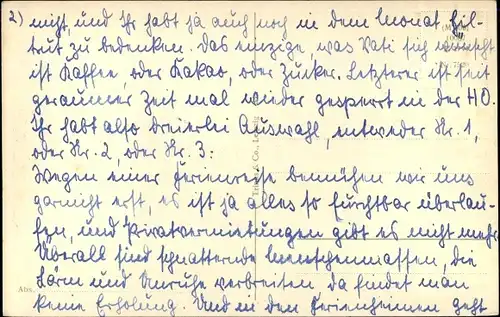 2) nicht, und Ihr habt ja auch noch in dem Monat Gil-
trut zu bedenken. Das einzige, was Vati sich wünscht
ist Kaffee, oder Kakao, oder Zucker. Letzterer ist seit
geraumer Zeit mal wieder gesperrt in der HO.
Ihr habt also dreierlei Auswahl, entweder Nr. 1,
oder Nr. 2, oder Nr. 3:
Wegen einer Ferienreise bemühen wir uns
garnicht erst, es ist ja alles so furchtbar überlau-
fen, und Privatvermietungen gibt es nicht mehr.
Überall sind schnatternde Menschenmassen, die
Lärm und Unruhe verbreiten, da findet man
keine Erholung. Und in den Ferienheimen geht
Abs.
& Co., Leipzig